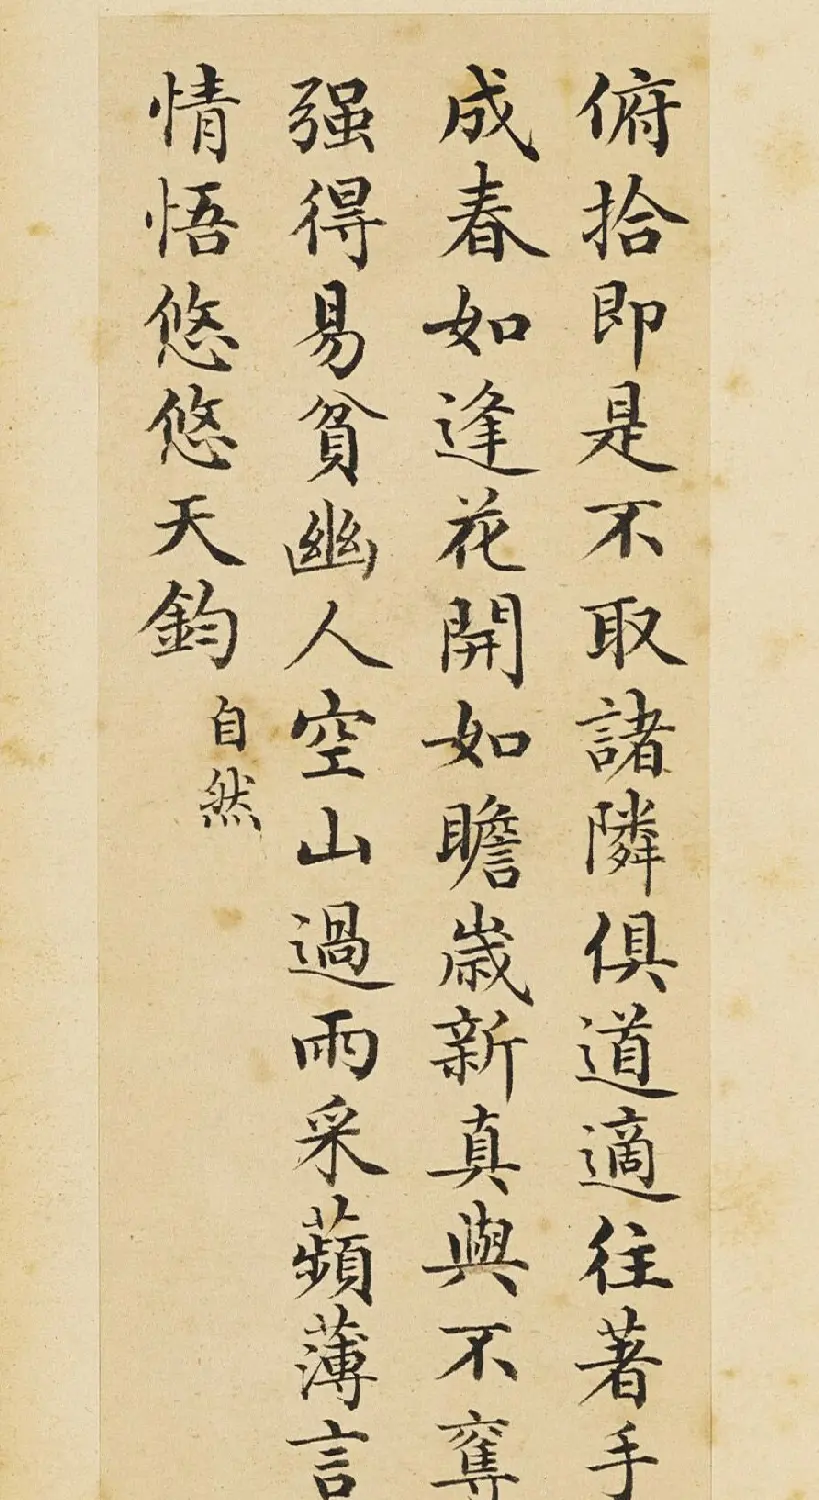 俯拾即是不取諸隣俱道適往著手
成春如逢花開如瞻歲新真與不奪
强得易貧幽人空山過雨采蘋薄言
情悟悠悠天鈞
自然